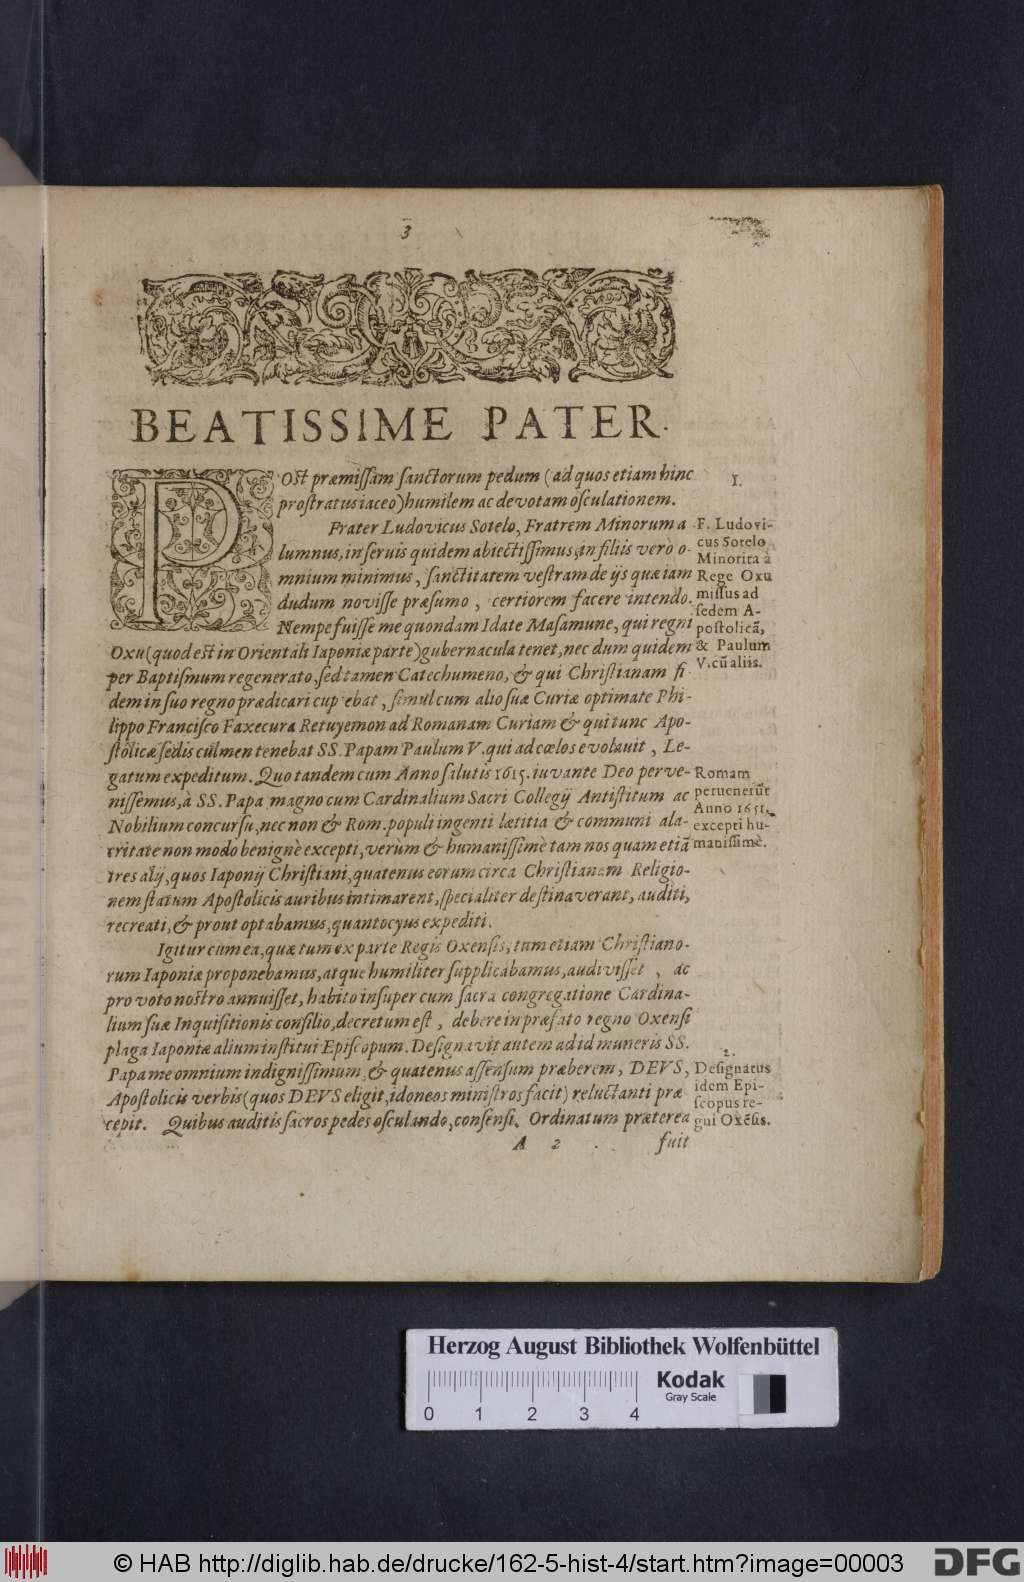 3
BEATISSIME PATER.
POst præmissam sanctorum pedum (ad quos etiam hinc
prostratus iaceo) humilem ac devotam osculationem.
Prater Ludovicus Sotelo, Fratrem Minorum a
lumnus, in servis quidem abiectissimus, in filiis verò o-
mnium minimus, sanctitatem vestram de ijs quæ iam
dudum novisse præsumo, certiorem facere intendo.
Nempe fuisse me quondam Idate Masamune, qui regni
Oxu (quod est in Orientali Iaponiæ parte) gubernacula tenet, nec dum quidem
per Baptismum regenerato, sed tamen Catechumeno, & qui Christianam fi
dem in suo regno prædicari cupiebat, simul cum alio suæ Curiæ optimate Phi-
lippo Francisco Faxecura Retuyemon ad Romanam Curiam & qui tunc Apo-
stolicæ sedis culmen tenebat SS. Papam Paulum V. qui ad cœlos evolavit, Le-
gatum expeditum. Quo tandem cum Anno salutis 1615. iuvante Deo perve-
nissemus, à SS. Papa magno cum Cardinalium Sacri Collegij Antistitum ac
Nobilium concursu, nec non & Rom. populi ingenti lætitia & communi ala-
critate non modo benignè excepti, verùm & humanissimè tam nos quam etiã
tres alij, quos Iaponij Christiani, quatenus eorum circa Christianam Religio-
nem statum Apostolicis auribus intimarent, specialiter destinaverant, auditi,
recreati, & prout optabamus, quantocyus expediti.
Igitur cum ea, quæ tum ex parte Regis Oxensis, tum etiam Christiano-
rum Iaponiæ proponebamus, atque humiliter supplicabamus, audivisset, ac
pro voto nostro annuisset, habito insuper cum sacra congregatione Cardina-
lium suæ Inquisitionis consilio, decretum est, debere in præfato regno Oxensi
plaga Iaponiæ alium institui Episcopum. Designavit autem ad id muneris SS.
Papa me omnium indignissimum, & quatenus assensum præberem, DEVS,
Apostolicis verbis (quos DEVS eligit, idoneos ministros facit) reluctanti præ
cepit. Quibus auditis sacros pedes osculando, consensi. Ordinatum præterea
A 2 fuit
1.
F. Ludovi-
cus Sotelo
Minorita à
Rege Oxu
missus ad
sedem A-
postolicã,
& Paulum
V. cũ aliis.
Romam
pervenerũt
Anno 1651.
excepti hu-
manissimè.
2.
Designatus
idem Epi-
scopus re-
gni Oxẽsis.
Herzog August Bibliothek Wolfenbüttel
Kodak
Gray Scale
0 1 2 3 4
© HAB http://diglib.hab.de/drucke/162-5-hist-4/start.htm?image=00003
DFG